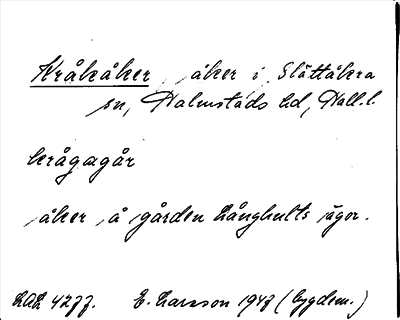 Kråkåker, åker i Slättåkra
sn, Halmstads hd, Hall.l.
krågagår
åker å gården Långhults ägor.
LAL 4277. E. Larsson 1947 (bygdem.)